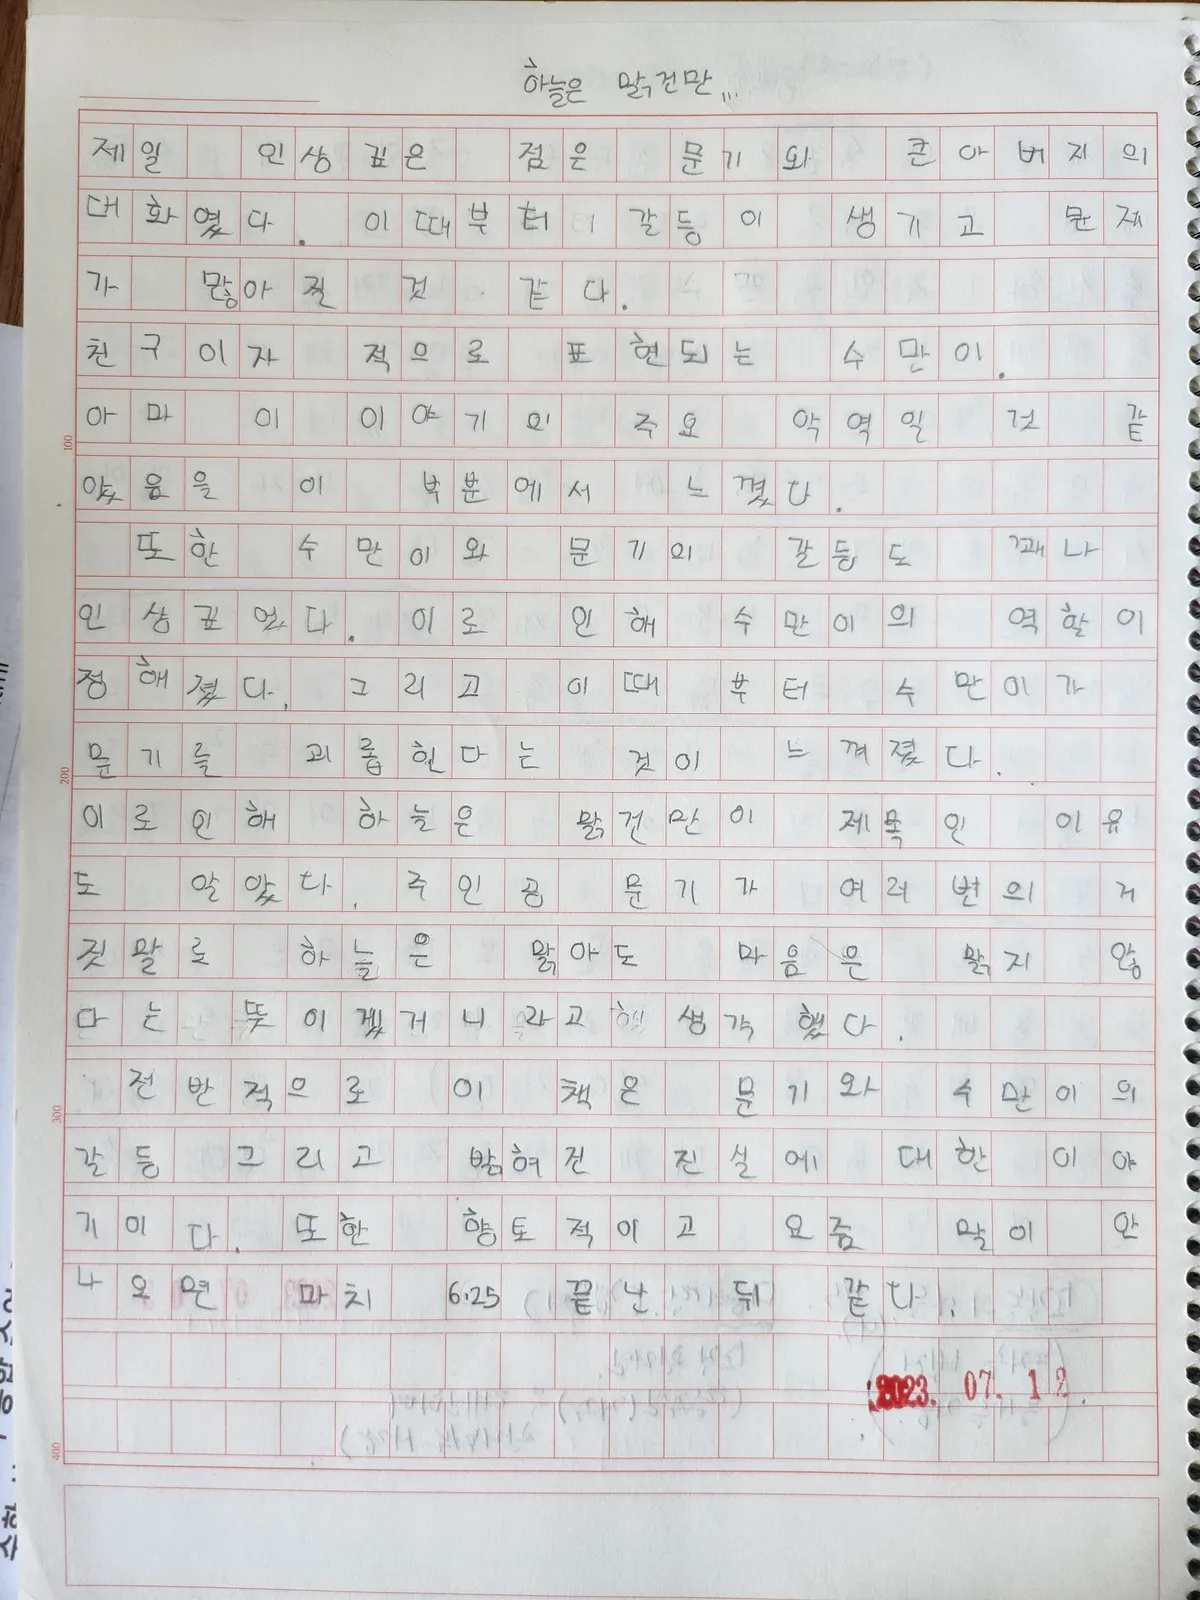 하늘은 맑건만...
제일 인상 깊은 점은 문기와 큰아버지의
대화였다. 이때부터 갈등이 생기고 문제
가 많아질 것 같다.
친구이자 적으로 표현되는 수만이.
아마 이 이야기의 주요 악역일 것 같
았음을 이 부분에서 느꼈다.
또한 수만이와 문기의 갈등도 꽤나
인상 깊었다. 이로 인해 수만이의 역할이
정해졌다. 그리고 이때 부터 수만이가
문기를 괴롭힌다는 것이 느껴졌다.
이로인해 하늘은 맑건만이 제목인 이유
도 알았다. 주인공 문기가 여러번의 거
짓말로 하늘은 맑아도 마음은 맑지 않
다는 뜻이겠거니라고 생각했다.
전반적으로 이 책은 문기와 수만이의
갈등 그리고 밝혀진 진실에 대한 이야
기이다. 또한 향토적이고 요즘 말이 안
나오면 마치 6.25 끝난 뒤 같다.
2023. 07. 12.
100
200
300
400